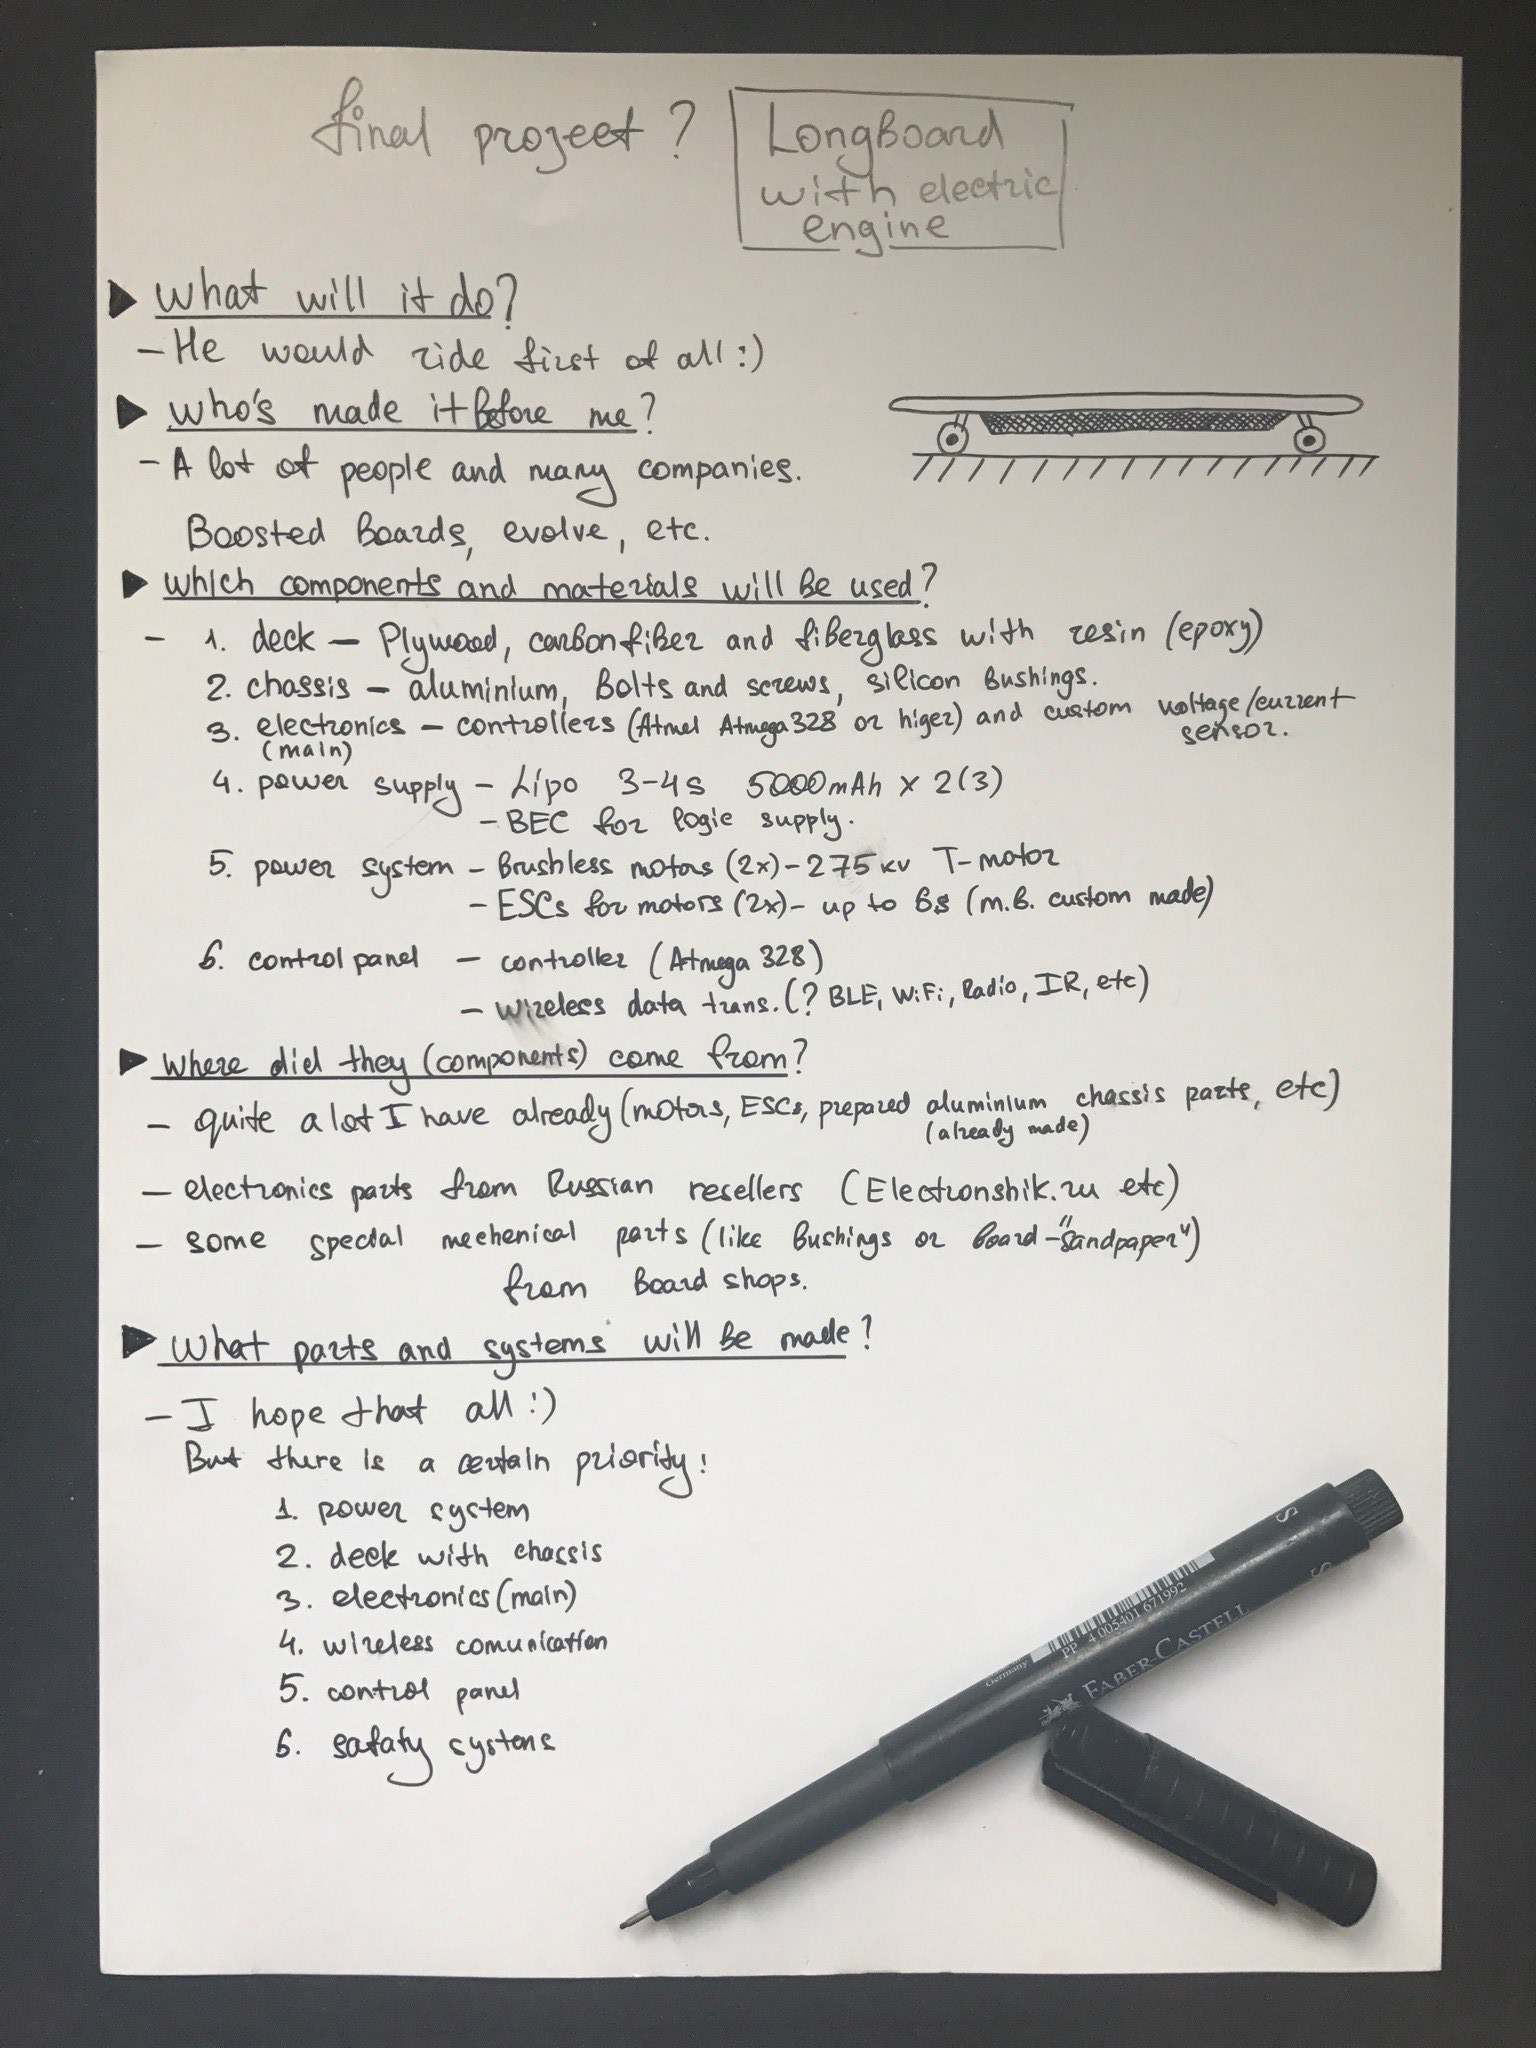 final project?
LongBoard
with electric
engine
What will it do?
– He would ride first of all :)
Who's made it before me?
– A lot of people and many companies.
Boosted Boards, evolve, etc.
Which components and materials will be used?
– 1. deck – Plywood, carbonfiber and fiberglass with resin (epoxy)
2. chassis – aluminium, Bolts and screws, silicon Bushings.
3. electronics – controllers (Atmel Atmega 328 or higer) and custom voltage/current
(main) sensor.
4. power supply – Lipo 3-4s 5000mAh x 2(3)
– BEC for logic supply.
5. power system – Brushless motors (2x) – 275 kv T-motor
– ESCs for motors (2x) – up to 6s (m.b. custom made)
6. control panel – controller (Atmega 328)
– wireless data trans. (? BLE, WiFi, Radio, IR, etc)
Where did they (components) come from?
– quite a lot I have already (motors, ESCs, prepared aluminium chassis parts, etc)
(already made)
– electronics parts from Russian resellers (Electronshik.ru etc)
– some special mechenical parts (like Bushings or board-"sandpaper")
from Board shops.
What parts and systems will be made?
– I hope that all :)
But there is a certain priority:
1. power system
2. deck with chassis
3. electronics (main)
4. wireless comunication
5. control panel
6. safaty systems
S
Germany
PP 4 005401 671992
FABER-CASTELL